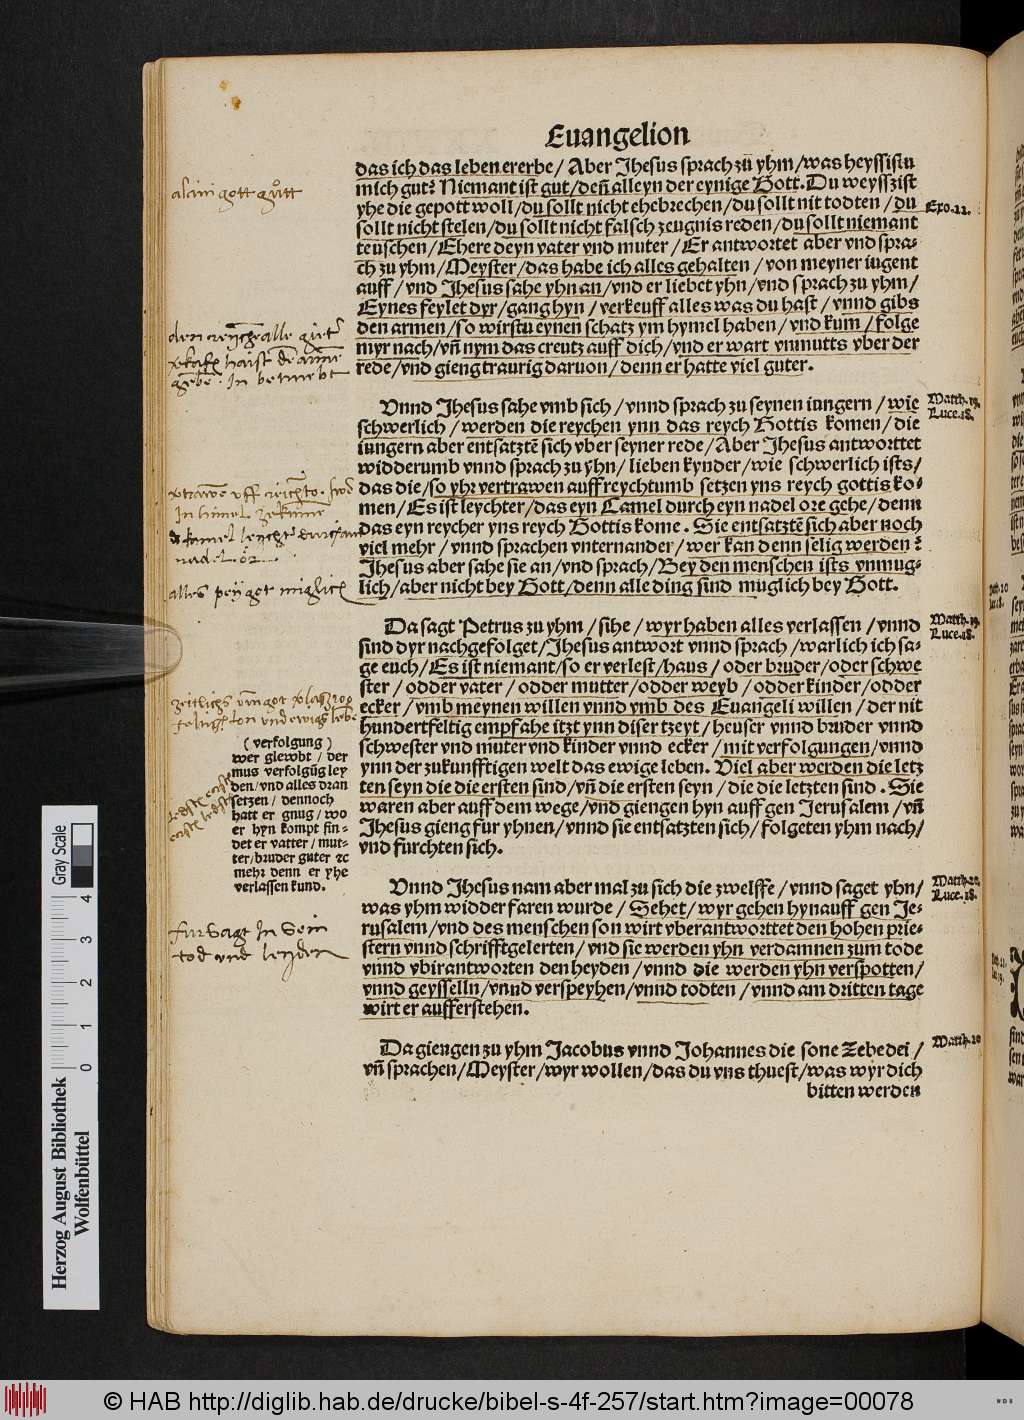 Euangelion
das ich das leben ererbe / Aber Jhesus sprach zu yhm / was heyssistu
mich gut? Niemant ist gut / deñ alleyn der eynige Gott. Du weysszist
yhe die gepott woll / du sollt nicht ehebrechen / du sollt nit todten / du
sollt nicht stelen / du sollt nicht falsch zeugnis reden / du sollt niemant
teuschen / Ehere deyn vater vnd muter / Er antwortet aber vnd spra-
ch zu yhm / Meyster / das habe ich alles gehalten / von meyner iugent
auff / vnd Jhesus sahe yhn an / vnd er liebet yhn / vnd sprach zu yhm /
Eynes feylet dyr / gang hyn / verkeuff alles was du hast / vnnd gibs
den armen / so wirstu eynen schatz ym hymel haben / vnd kum / folge
myr nach / vñ nym das creutz auff dich / vnd er wart vnmutts vber der
rede / vnd gieng traurig daruon / denn er hatte viel guter.
Exo.22.
alain gott gůtt
Vnnd Jhesus sahe vmb sich / vnnd sprach zu seynen iungern / wie
schwerlich / werden die reychen ynn das reych Gottis komen / die
iungern aber entsatztē sich vber seyner rede / Aber Jhesus antworttet
widderumb vnnd sprach zu yhn / lieben kynder / wie schwerlich ists /
das die / so yhr vertrawen auff reychtumb setzen yns reych gottis ko-
men / Es ist leychter / das eyn Camel durch eyn nadel ore gehe / denn
das eyn reycher yns reych Gottis kome. Sie entsatztē sich aber noch
viel mehr / vnnd sprachen vnternander / wer kan denn selig werden?
Jhesus aber sahe sie an / vnd sprach / Bey den menschen ists vnmug-
lich / aber nicht bey Gott / denn alle ding sind muglich bey Gott.
Matth.19.
Luce.18.
nadel ör
alles pey got miglich
Da sagt Petrus zu yhm / sihe / wyr haben alles verlassen / vnnd
sind dyr nachgefolget / Jhesus antwort vnnd sprach / warlich ich sa-
ge euch / Es ist niemant / so er verlest / haus / oder bruder / oder schwe
ster / odder vater / odder mutter / odder weyb / odder kinder / odder
ecker / vmb meynen willen vnnd vmb des Euangeli willen / der nit
hundertfeltig empfahe itzt ynn diser tzeyt / heuser vnnd bruder vnnd
schwester vnd muter vnd kinder vnnd ecker / mit verfolgungen / vnnd
ynn der zukunfftigen welt das ewige leben. Viel aber werden die letz
ten seyn die die ersten sind / vñ die ersten seyn / die die letzten sind. Sie
waren aber auff dem wege / vnd giengen hyn auff gen Jerusalem / vñ
Jhesus gieng fur yhnen / vnnd sie entsatzten sich / folgeten yhm nach /
vnd furchten sich.
Matth.19.
Luce.18.
(verfolgung)
wer glewbt / der
mus verfolgūg ley
den / vnd alles dran
setzen / dennoch
hatt er gnug / wo
er hyn kompt fin-
det er vatter / mut-
ter / bruder guter ꝛc
mehr denn er yhe
verlassen kund.
Vnnd Jhesus nam aber mal zu sich die zwelffe / vnnd saget yhn /
was yhm widder faren wurde / Sehet / wyr gehen hynauff gen Je-
rusalem / vnd des menschen son wirt vberantworttet den hohen prie-
stern vnnd schrifftgelerten / vnd sie werden yhn verdamnen zum tode
vnnd vbirantworten den heyden / vnnd die werden yhn verspotten /
vnnd geysselln / vnnd verspeyhen / vnnd todten / vnnd am dritten tage
wirt er aufferstehen.
Matth.20.
Luce.18.
fursagt In sein
tod vnd leyden
Da giengen zu yhm Jacobus vnnd Johannes die sone Zebedei /
vñ sprachen / Meyster / wyr wollen / das du vns thuest / was wyr dich
bitten werden
Matth.20
Herzog August Bibliothek
Wolfenbüttel
Gray Scale
0 1 2 3 4
© HAB http://diglib.hab.de/drucke/bibel-s-4f-257/start.htm?image=00078